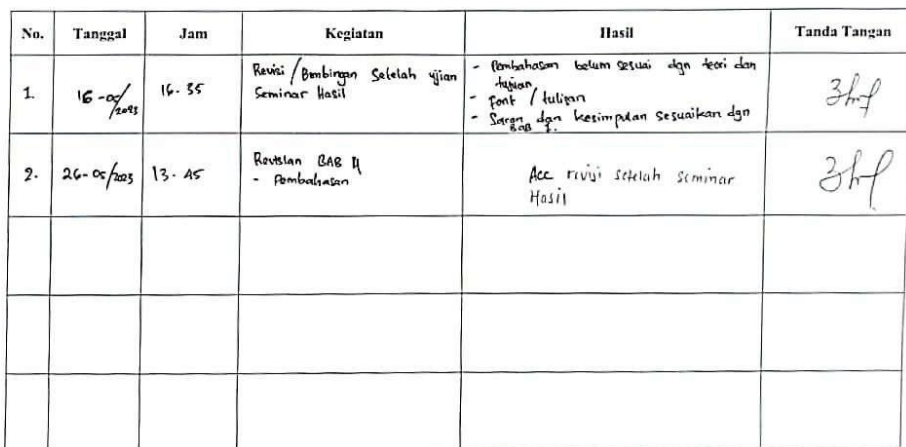 No. Tanggal Jam Kegiatan Hasil Tanda Tangan
1. 16-05/2023 16.35
Revisi / Bimbingan Setelah ujian
Seminar Hasil
- Pembahasan belum sesuai dgn teori dan
tujuan
- Font / tulisan
- Saran dan kesimpulan sesuaikan dgn
BAB 1.
2. 26-05/2023 13.45
Revisian BAB
- Pembahasan
Acc revisi setelah seminar
Hasil